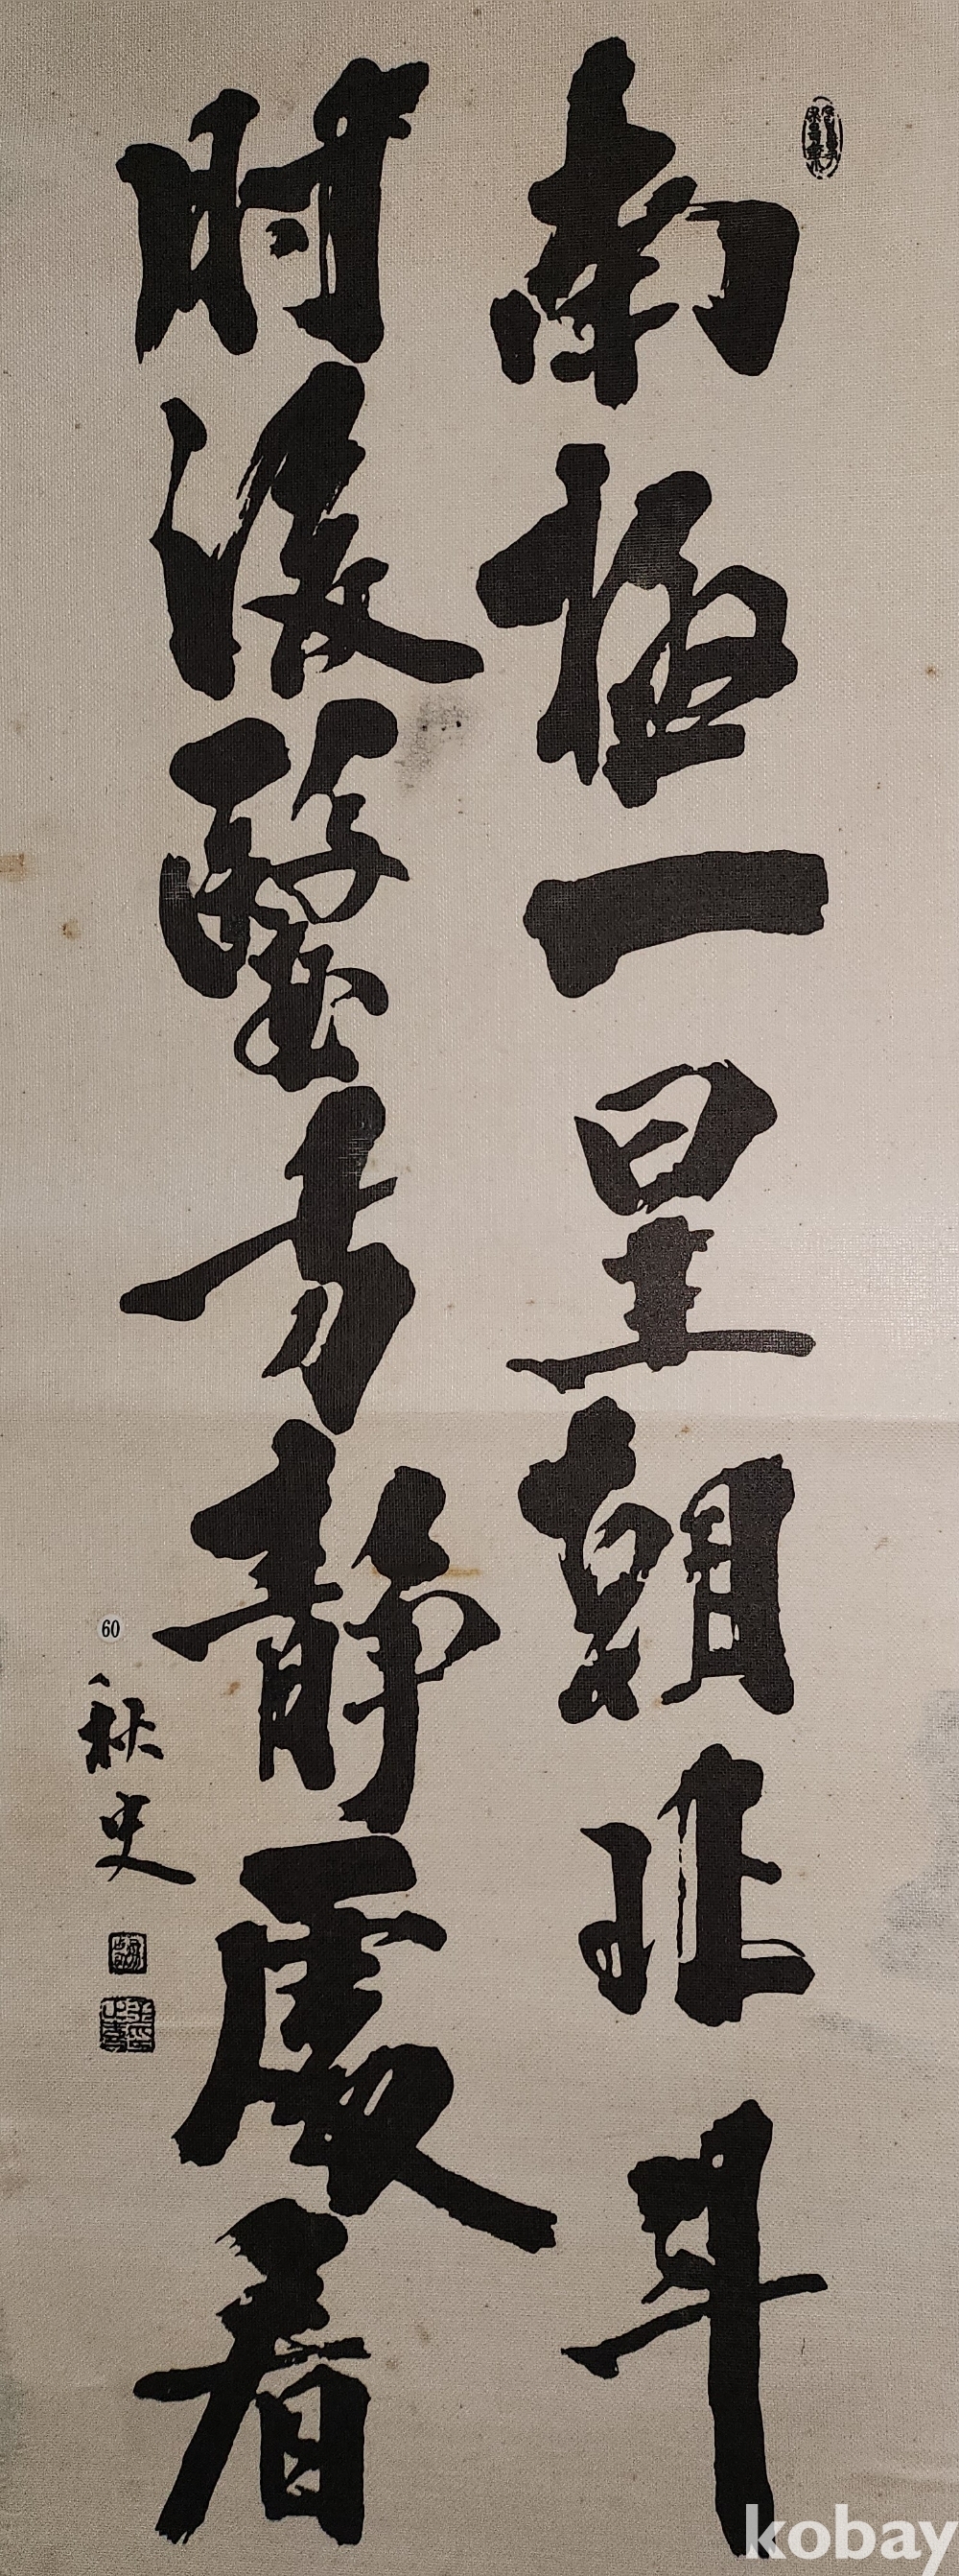 南極一星朝北斗
肘後毉方靜處看
60
秋史
kobay